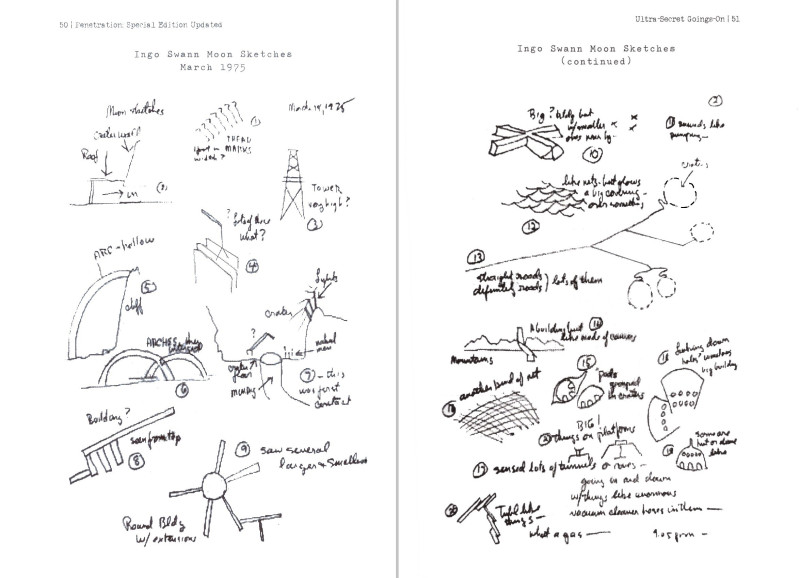 50 | Penetration: Special Edition Updated
Ingo Swann Moon Sketches
March 1975
Moon sketches
March 14, 1975
crater wall
Roof
in
1
TREAD
MARKS
2
Tower
very high?
3
? lots of these
what?
4
ARC-hollow
5
cliff
lights
crater
ARCHES
6
?
natural
crater
7 - this
was first
contact
Building?
seen from top
8
9 saw several
larger & smaller
Round Bldg
w/ extensions
Ultra-Secret Goings-On | 51
Ingo Swann Moon Sketches
(continued)
2
Big? bldg but
w/ smaller x x
ones near by - x
10
11 sounds like
pumping -
craters
like nets - but glows
a big covering -
over something
12
13
straight roads
definitely roads } lots of them
A building but
like made of canvas
Mountains
another kind of net
15
pads
grouped
in craters
looking down
big building
BIG!
things on platforms
some are
dome
like
17 sensed lots of tunnels or
going in and down
w/ things like enormous
vacuum cleaner hoses in them —
Tube like
things -
what a gas —
9.05 pm -